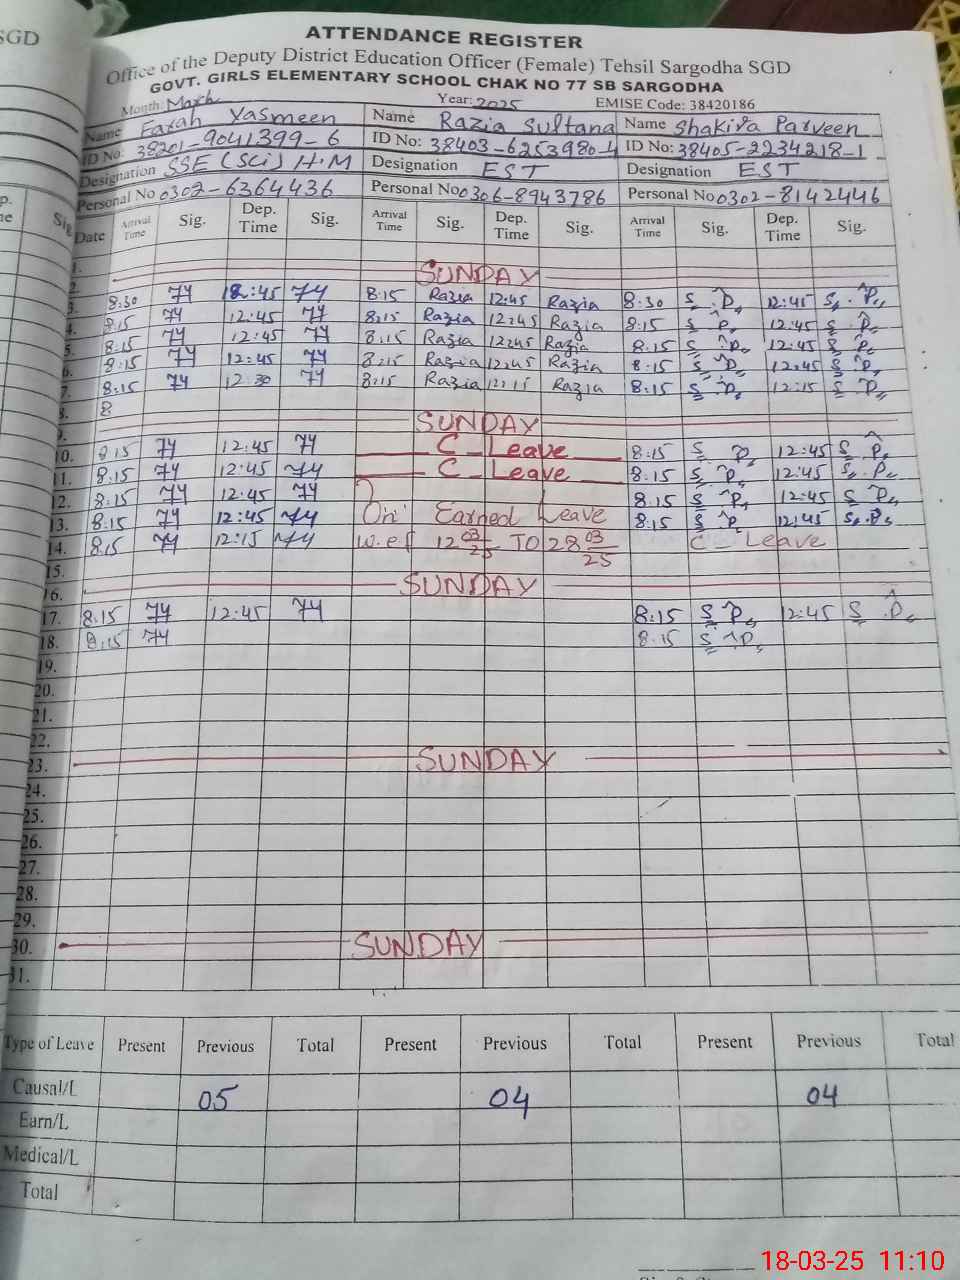 SGD
ATTENDANCE REGISTER
Office of the Deputy District Education Officer (Female) Tehsil Sargodha SGD
GOVT. GIRLS ELEMENTARY SCHOOL CHAK NO 77 SB SARGODHA
Month: March Year: 2025 EMISE Code: 38420186
Name Farah Yasmeen Name Razia Sultana Name Shakira Parveen
ID No: 38201-9041399-6 ID No: 38403-6253980-4 ID No: 38405-2234218-1
Designation SSE (Sci) H.M Designation EST Designation EST
Personal No 0302-6364436 Personal No 0306-8943786 Personal No 0302-8142446
Date Arrival Time Sig. Dep. Time Sig. Arrival Time Sig. Dep. Time Sig. Arrival Time Sig. Dep. Time Sig.
1.
2 SUNDAY
3. 8:30 12:45 8:15 Razia 12:45 Razia 8:30 S.P. 12:45 S.P.
4. 8:15 12:45 8:15 Razia 12:45 Razia 8:15 S.P. 12:45 S.P.
5. 8:15 12:45 8:15 Razia 12:45 Razia 8:15 S.P. 12:45 S.P.
6. 8:15 12:45 8:15 Razia 12:45 Razia 8:15 S.P. 12:45 S.P.
7. 8:15 12:30 8:15 Razia 12:15 Razia 8:15 S.P. 12:15 S.P.
8. 8
9. SUNDAY
10. 8:15 12:45 C-Leave 8:15 S.P. 12:45 S.P.
11. 8:15 12:45 C-Leave 8:15 S.P. 12:45 S.P.
12. 8:15 12:45 8:15 S.P. 12:45 S.P.
13. 8:15 12:45 On Earned Leave 8:15 S.P. 12:45 S.P.
14. 8:15 12:15 w.e.f 12 03/25 TO 28 03/25 C-Leave
15.
16. SUNDAY
17. 8:15 12:45 8:15 S.P. 12:45 S.P.
18. 8:15 8:15 S.P.
19.
20.
21.
22.
23. SUNDAY
24.
25.
26.
27.
28.
29.
30. SUNDAY
31.
Type of Leave Present Previous Total Present Previous Total Present Previous Total
Causal/L 05 04 04
Earn/L
Medical/L
Total
18-03-25 11:10